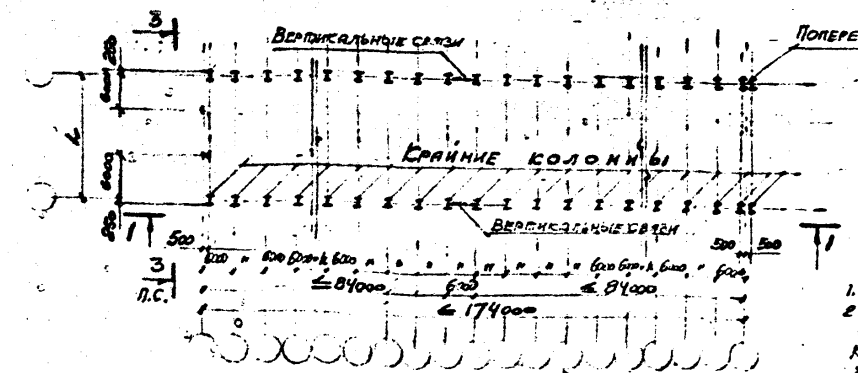 3
Вертикальные связи
Попере
250
6000
L
Крайние колонны
6000
250
Вертикальные связи
1
1
500
500 500
3
П.С.
6000 " 6000 6000+k 6000 " " " " " " " " 6000 6000+k 6000 " 6000
≤ 84000
6000
≤ 84000
≤ 174000
1.
2